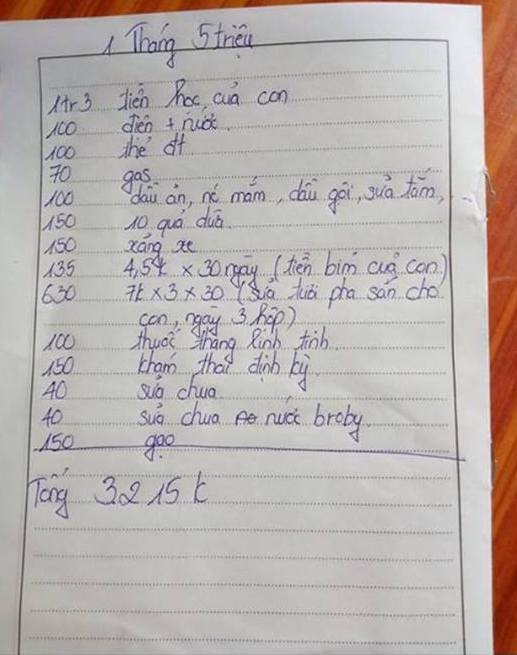 1 Tháng 5 triệu
1tr3 tiền học của con
100 điện + nước
100 thẻ đt
70 gas
100 dầu ăn, nc mắm, dầu gội, sữa tắm, ...
150 10 quả dừa
150 xăng xe
135 4,5k x 30 ngày (tiền bỉm của con)
630 7k x 3 x 30 (sữa tươi pha sẵn cho
con, ngày 3 hộp)
100 thuốc thang linh tinh.
150 khám thai định kỳ.
40 sữa chua
40 sữa chua nước broby.
150 gạo
Tổng 3215k